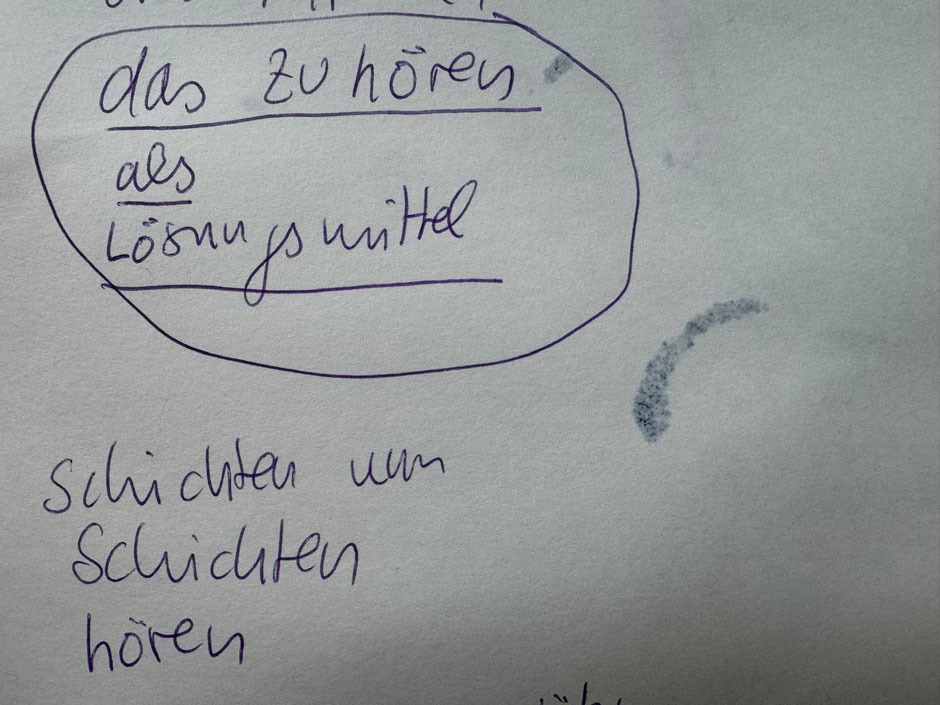 das zuhören
als
Lösungsmittel
schichten um
Schichten
hören